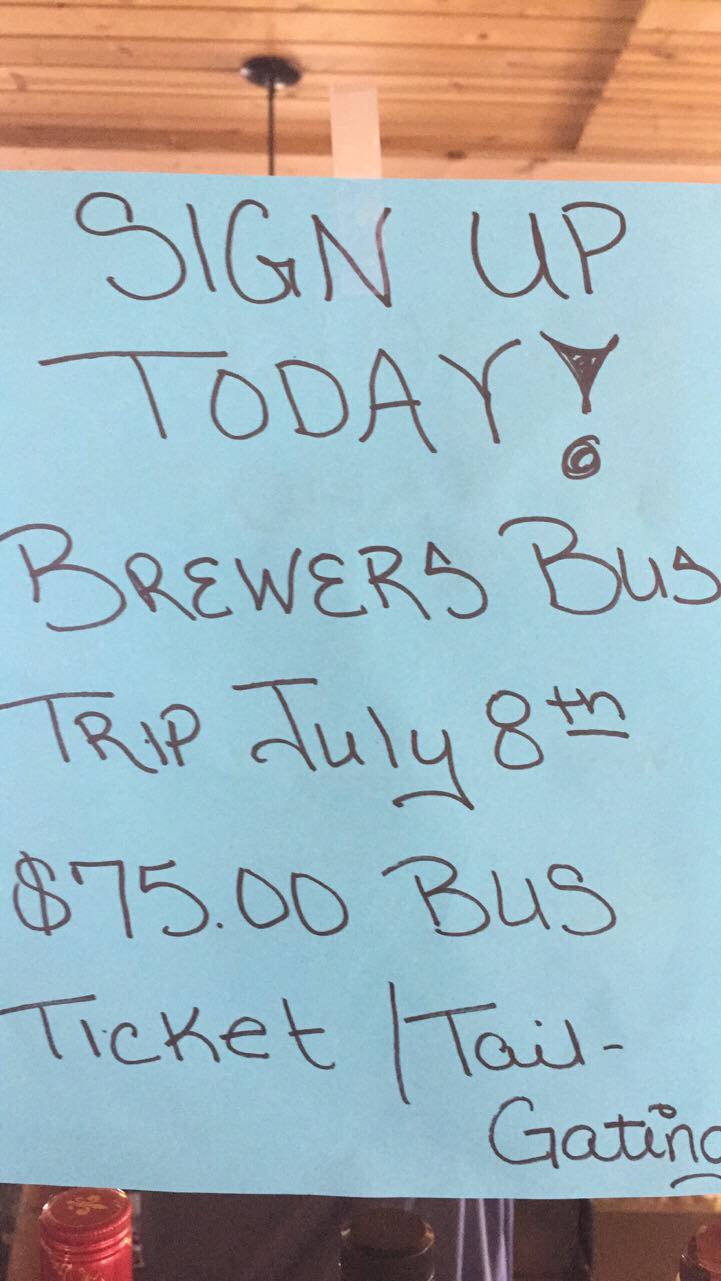 SIGN UP
TODAY!
BREWERS BUS
TRIP July 8th
$75.00 BUS
Ticket / Tail-
Gating